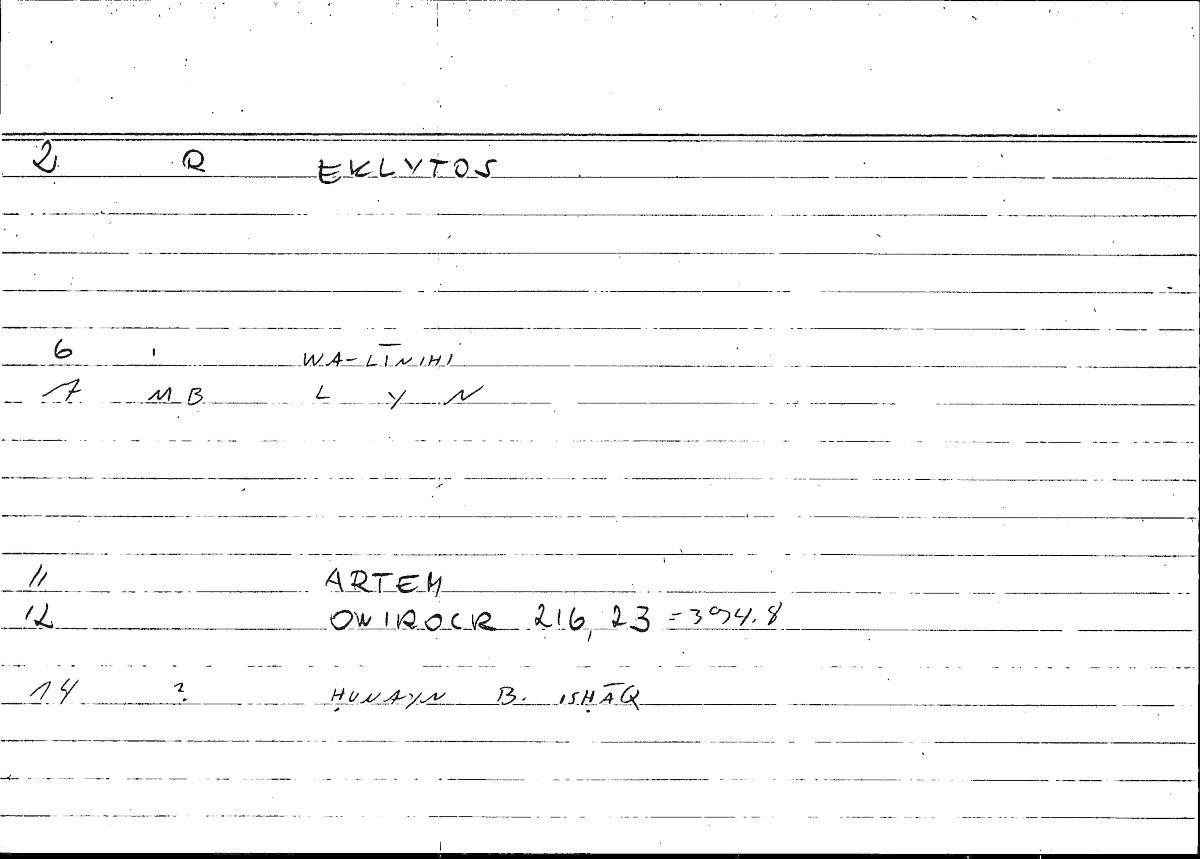 2 R EKLYTOS
6 1 WA-LĪNIHI
7 MB L Y N
11 ARTEM
12 ONIROCR 216,23 = 394.8
14 2 ḤUNAYN B. ISḤĀQ